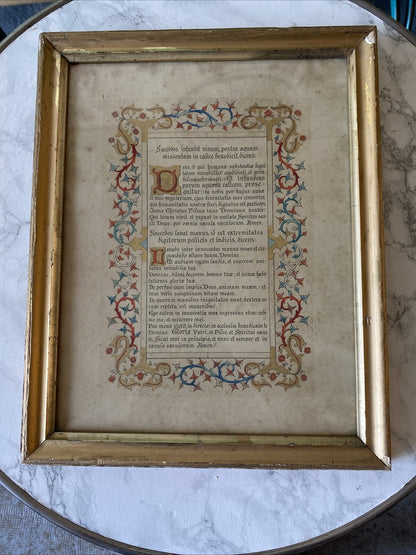 Sacerdos infundit vinum, postea aquam
miscendam in calice benedicit, dicens:
Deus, qui humanæ substantiæ digni
tatem mirabiliter condidisti, et mira
bilius reformasti:
parum aquæ in calicem, prose
quitur: da nobis per hujus aquæ
et vini mysterium, ejus divinitatis esse consortes
qui humanitatis nostræ fieri dignatus est particeps
Jesus Christus Filius tuus Dominus noster:
Qui tecum vivit et regnat in unitate Spiritus sanc
ti Deus: per omnia sæcula sæculorum. Amen.
Sacerdos lavat manus, id est extremitates
digitorum pollicis et indicis, dicens:
Lavabo inter innocentes manus meas: et cir
cumdabo altare tuum, Domine.
Ut audiam vocem laudis, et enarrem uni
versa mirabilia tua.
Domine, dilexi decorem domus tuæ: et locum habi
tationis gloriæ tuæ.
Ne perdas cum impiis, Deus, animam meam: et
cum viris sanguinum vitam meam.
In quorum manibus iniquitates sunt: dextera eo
rum repleta est muneribus.
Ego autem in innocentia mea ingressus sum: redi
me me, et miserere mei.
Pes meus stetit in directo: in ecclesiis benedicam te
Domine. Gloria Patri, et Filio, et Spiritui sanc
to. Sicut erat in principio, et nunc et semper et in
sæcula sæculorum. Amen.